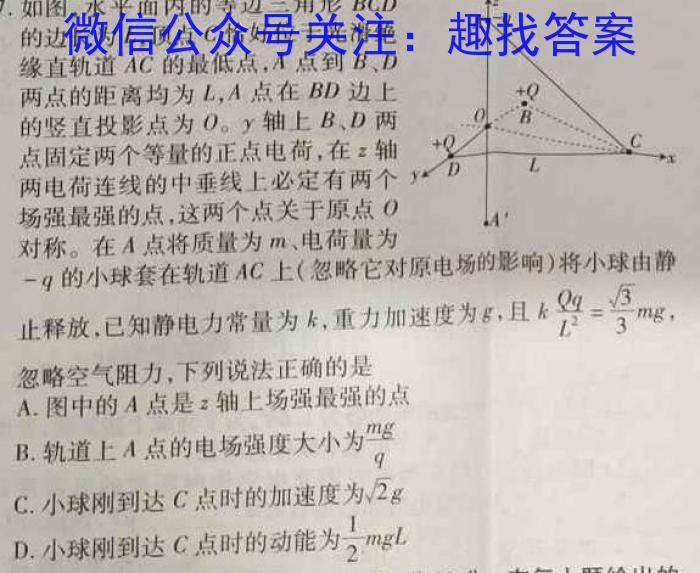 7. 如图,水平面内的等边三角形 BCD
的边
微信公众号关注：趣找答案
缘直轨道 AC 的最低点,A 点到 B、D
两点的距离均为 L,A 点在 BD 边上
的竖直投影点为 O。y 轴上 B、D 两
点固定两个等量的正点电荷,在 z 轴
两电荷连线的中垂线上必定有两个
场强最强的点,这两个点关于原点 O
对称。在 A 点将质量为 m、电荷量为
-q 的小球套在轨道 AC 上(忽略它对原电场的影响)将小球由静
止释放,已知静电力常量为 k,重力加速度为 g,且 k Qq/L² = √3/3 mg,
忽略空气阻力,下列说法正确的是
A. 图中的 A 点是 z 轴上场强最强的点
B. 轨道上 A 点的电场强度大小为 mg/q
C. 小球刚到达 C 点时的加速度为√2g
D. 小球刚到达 C 点时的动能为 1/2 mgL
z
+Q
B
O
+Q
C
x
y
D
L
A'